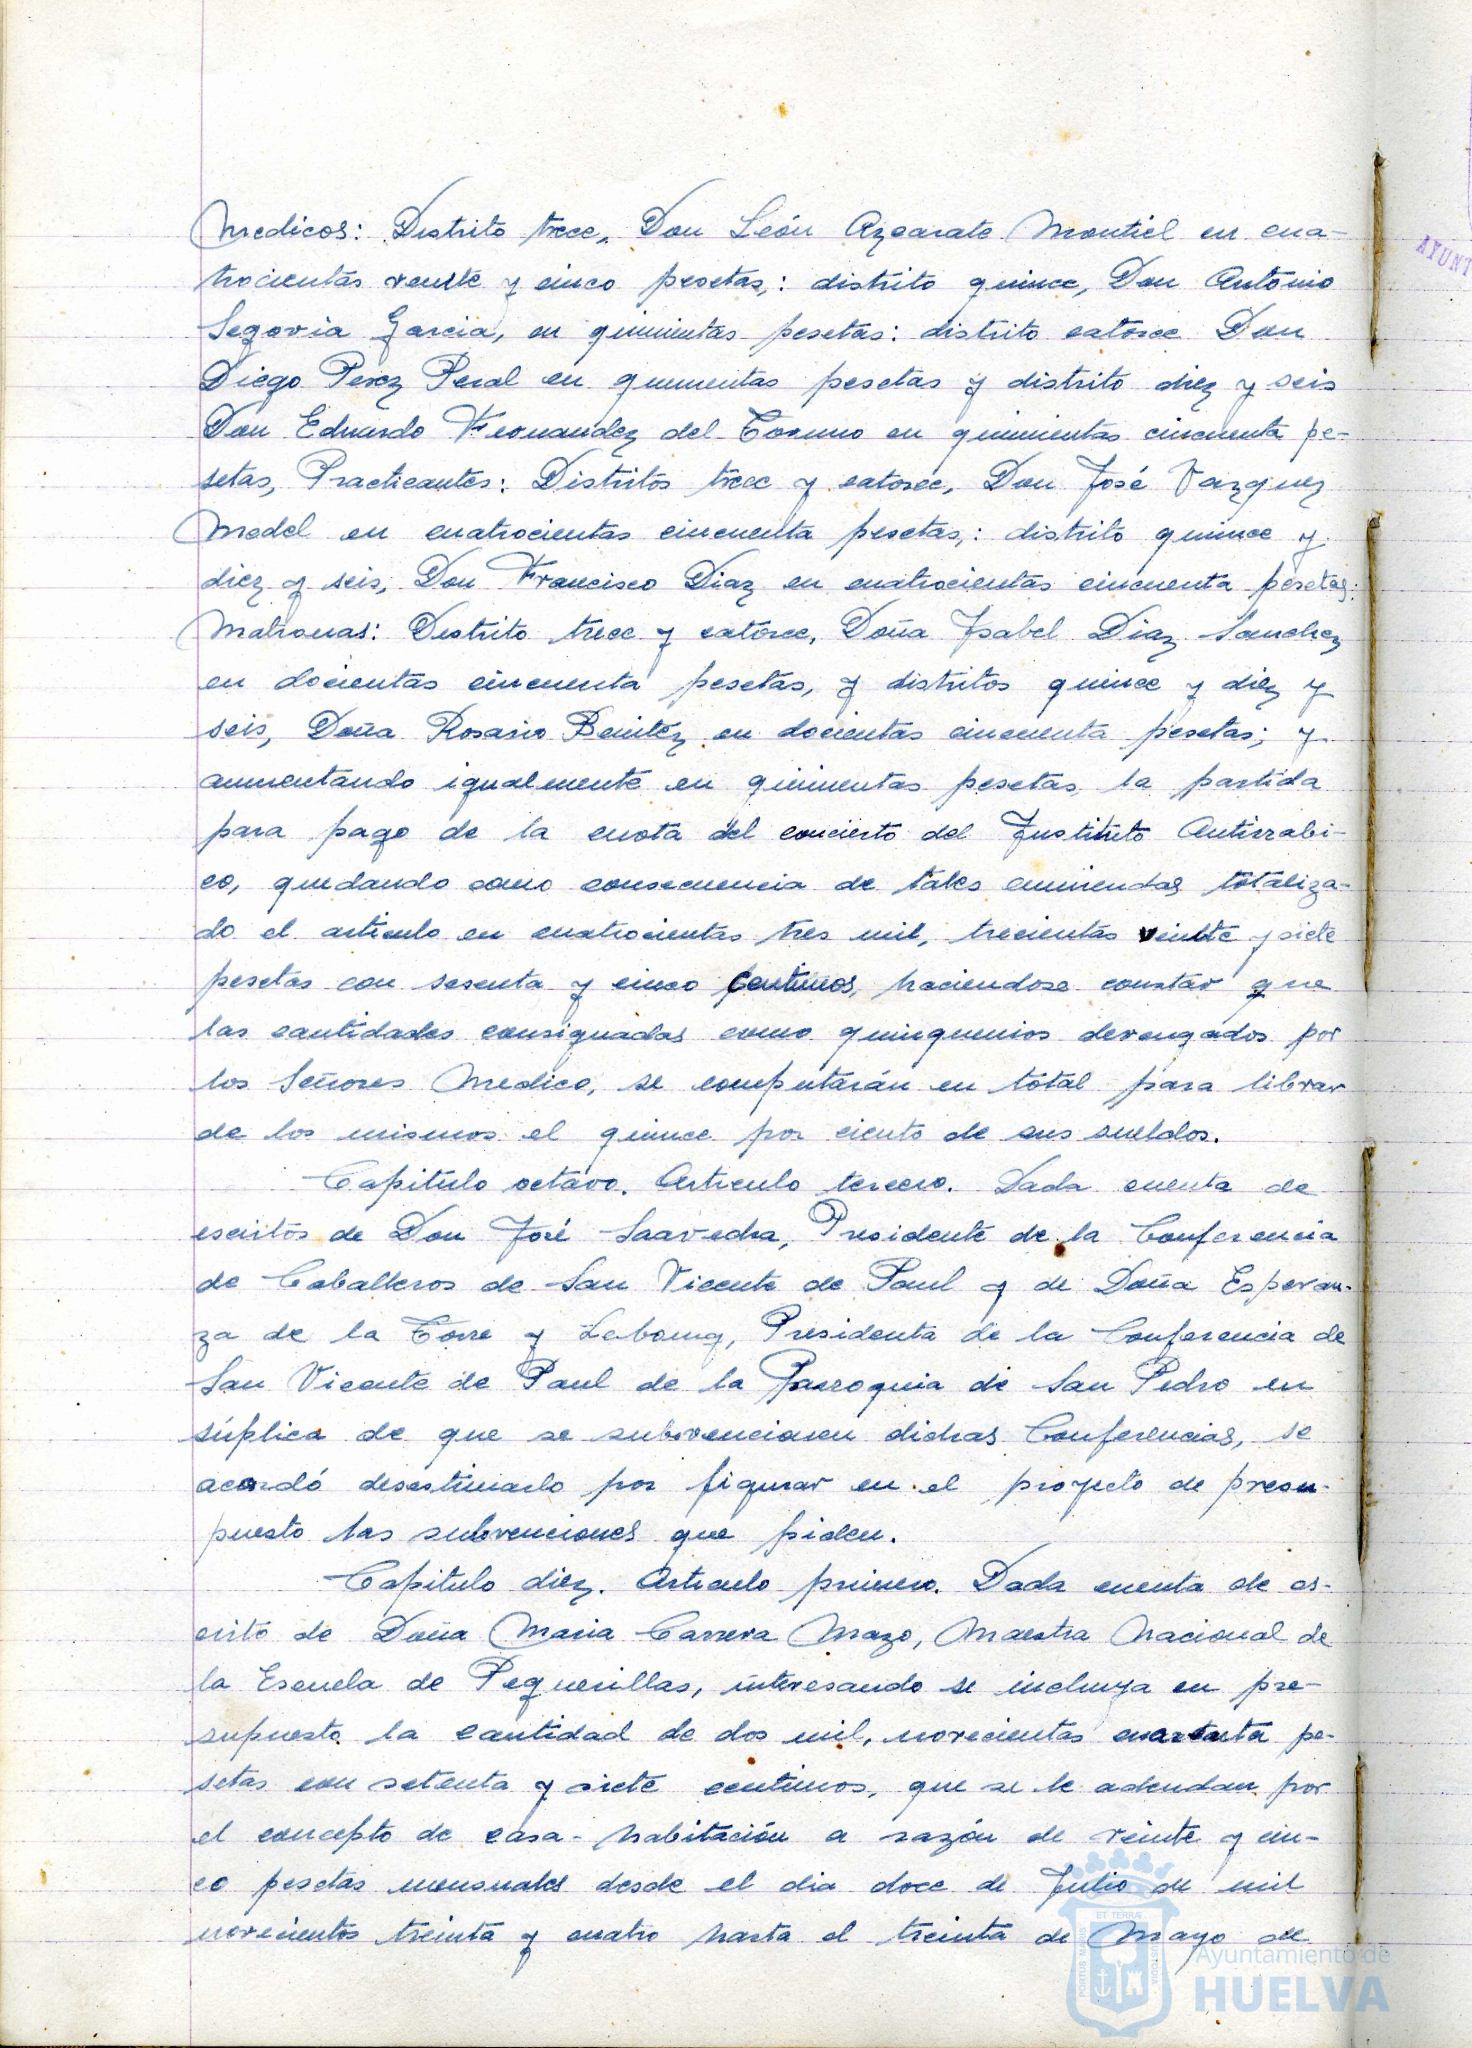 Medicos: Distrito trece, Don León Azcarate Montiel en cua-
trocientas veinte y cinco pesetas,: distrito quince, Don Antonio
Segovia Garcia, en quinientas pesetas: distrito catorce Don
Diego Perez Peral en quinientas pesetas y distrito diez y seis
Don Eduardo Fernandez del Torno en quinientas cincuenta pe-
setas, Practicantes: Distritos trece y catorce, Don José Vazquez
Medel en cuatrocientas cincuenta pesetas,: distrito quince y
diez y seis, Don Francisco Diaz en cuatrocientas cincuenta pesetas:
Matronas: Distrito trece y catorce, Doña Isabel Diaz Sanchez
en docientas cincuenta pesetas, y distritos quince y diez y
seis, Doña Rosario Benitez en docientas cincuenta pesetas; y
aumentando igualmente en quinientas pesetas la partida
para pago de la cuota del concierto del Instituto Antirrabi-
co, quedando como consecuencia de tales enmiendas totaliza-
do el articulo en cuatrocientas tres mil, trecientas veinte y siete
pesetas con sesenta y cinco centimos, haciendose constar que
las cantidades consignadas como quinquenios devengados por
los Señores Medico, se computarán en total para librar
de los mismos el quince por ciento de sus sueldos.
Capitulo octavo. Articulo tercero. Dada cuenta de
escritos de Don José Saavedra, Presidente de la Conferencia
de Caballeros de San Vicente de Paul y de Doña Esperan-
za de la Torre y Labourg, Presidenta de la Conferencia de
San Vicente de Paul de la Parroquia de San Pedro en
súplica de que se subvencionen dichas Conferencias, se
acordó desestimarlo por figurar en el proyecto de presu-
puesto las subvenciones que piden.
Capitulo diez. Articulo primero. Dada cuenta de es-
crito de Doña Maria Carrera Mazo, Maestra Nacional de
la Escuela de Pequerillas, interesando se incluya en pre-
supuesto la cantidad de dos mil, novecientas cuarenta pe-
setas con setenta y siete centimos, que se le adeudan por
el concepto de casa-habitación a razón de veinte y cin-
co pesetas mensuales desde el dia doce de Julio de mil
novecientos treinta y cuatro hasta el treinta de Mayo de
Ayuntamiento de
HUELVA
AYUNT